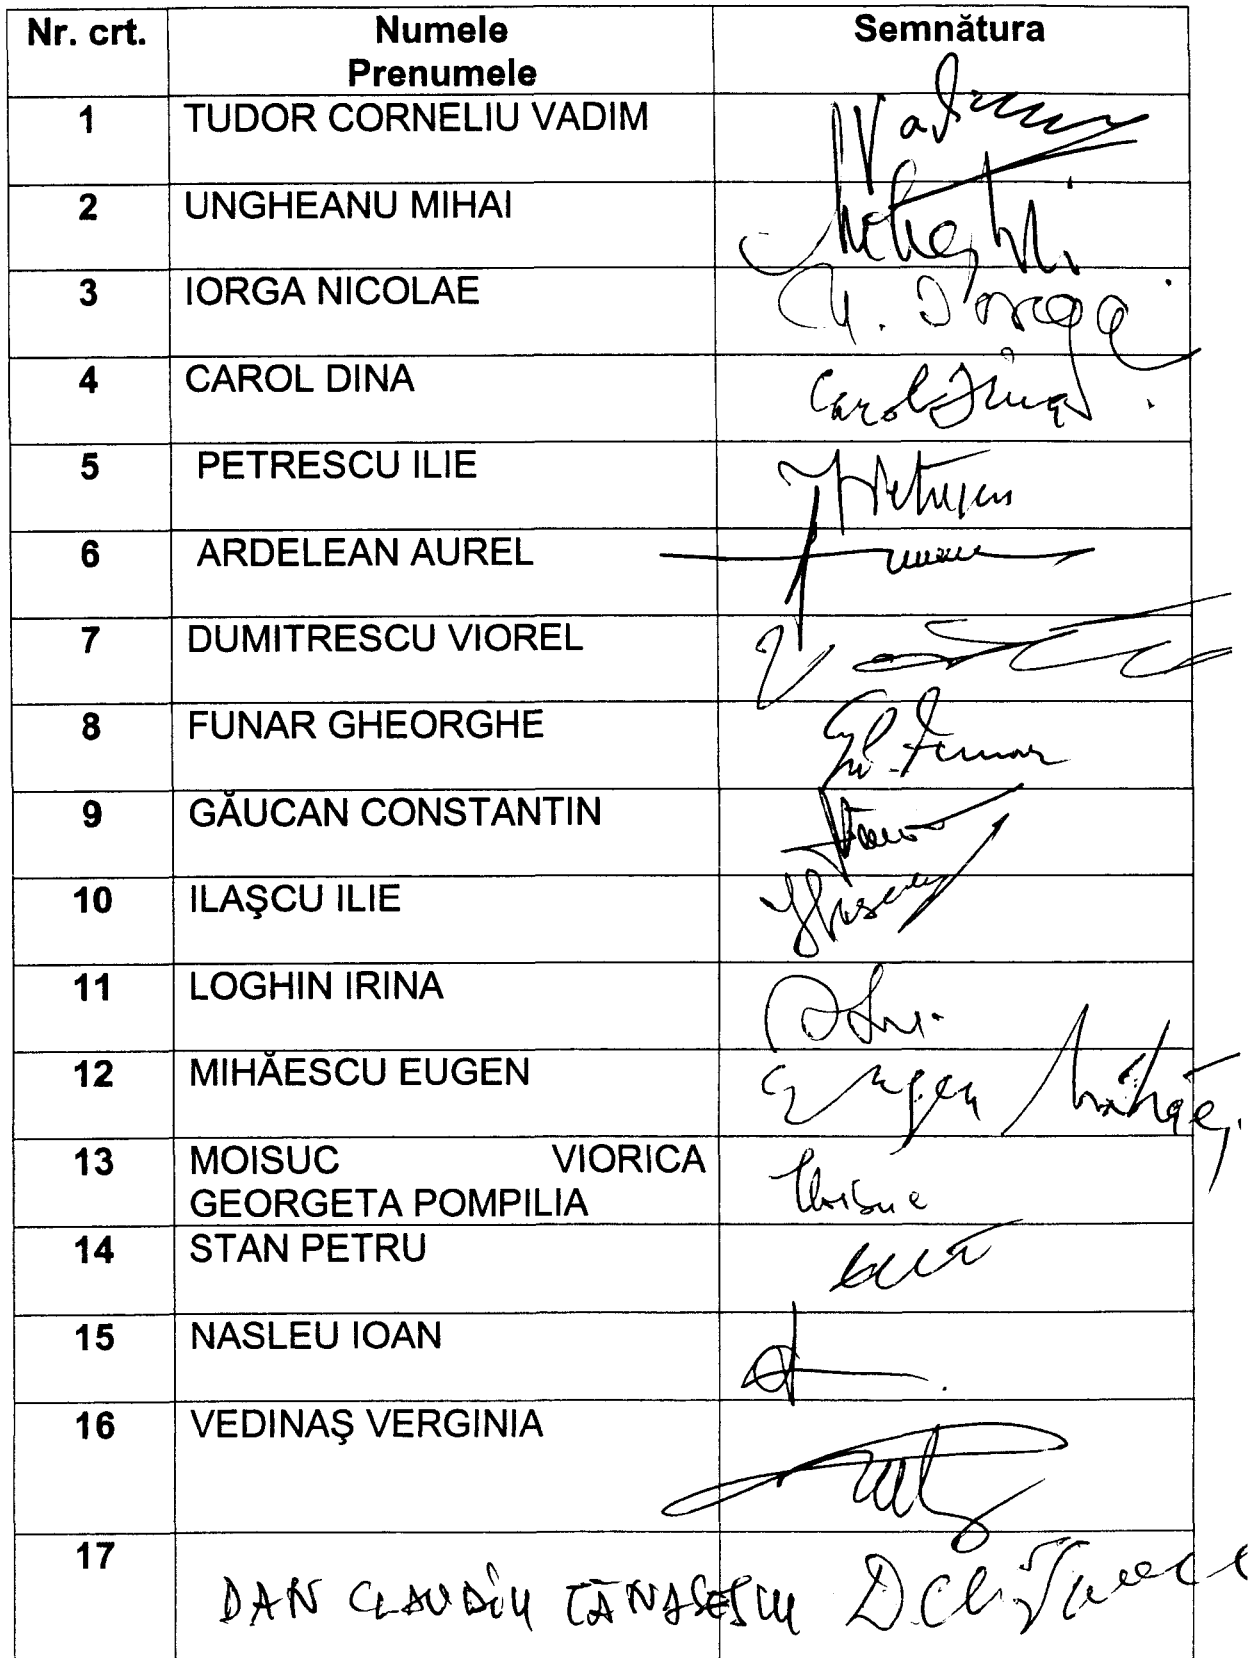 Nr. crt. Numele Semnătura
Prenumele
1 TUDOR CORNELIU VADIM Vadim
2 UNGHEANU MIHAI
3 IORGA NICOLAE N. Iorga
4 CAROL DINA Carol Dina
5 PETRESCU ILIE
6 ARDELEAN AUREL
7 DUMITRESCU VIOREL
8 FUNAR GHEORGHE Gh. Funar
9 GĂUCAN CONSTANTIN
10 ILAŞCU ILIE
11 LOGHIN IRINA
12 MIHĂESCU EUGEN Eugen
13 MOISUC VIORICA
GEORGETA POMPILIA Moisuc
14 STAN PETRU
15 NASLEU IOAN
16 VEDINAŞ VERGINIA
17
DAN CLAUDIU TĂNĂSESCU